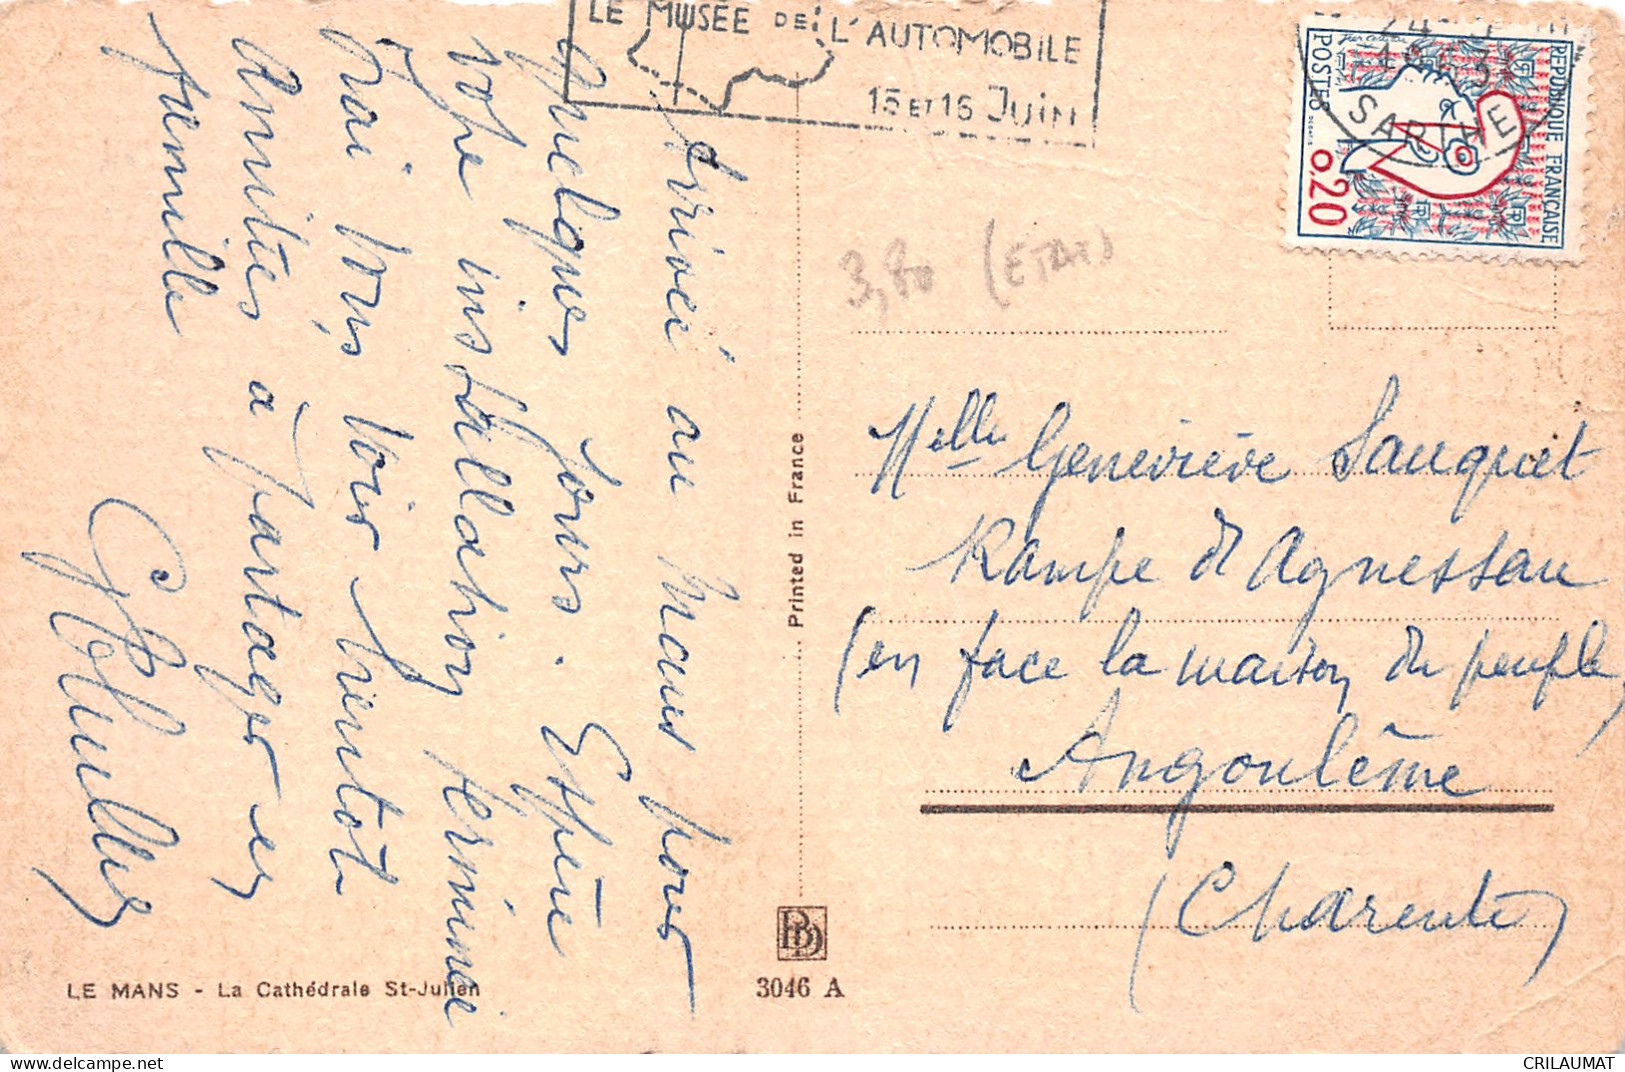 LE MUSÉE DE L'AUTOMOBILE
15 ET 16 JUIN
RÉPUBLIQUE FRANÇAISE
POSTES
0,20
SARTHE
3,80 (ETAT)
Arrivée au Mans pour
quelques jours. Espère
votre installation terminée
irai vous voir bientôt
Amitiés à partager en
famille
Melle Geneviève Sauquet
Rampe d'Aguesseau
(en face la maison du peuple)
Angoulême
(Charente)
Printed in France
LE MANS - La Cathédrale St-Julien
3046 A
CRILAUMAT